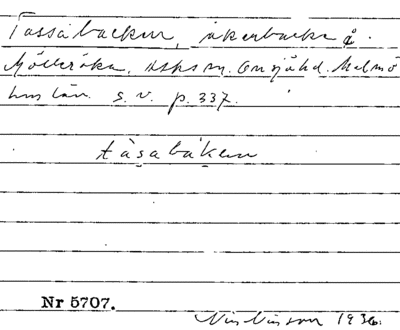 Tassabacken, åkerbacke å
Mölleröka, Asks sn. Onsjö hd. Malmö
hus län. s. v. p. 337.
tàsabàken
Nr 5707.
Nils Nilsson 1936.